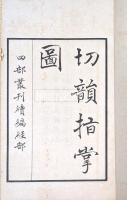 切韻指掌
圖
四部叢刊續編經部